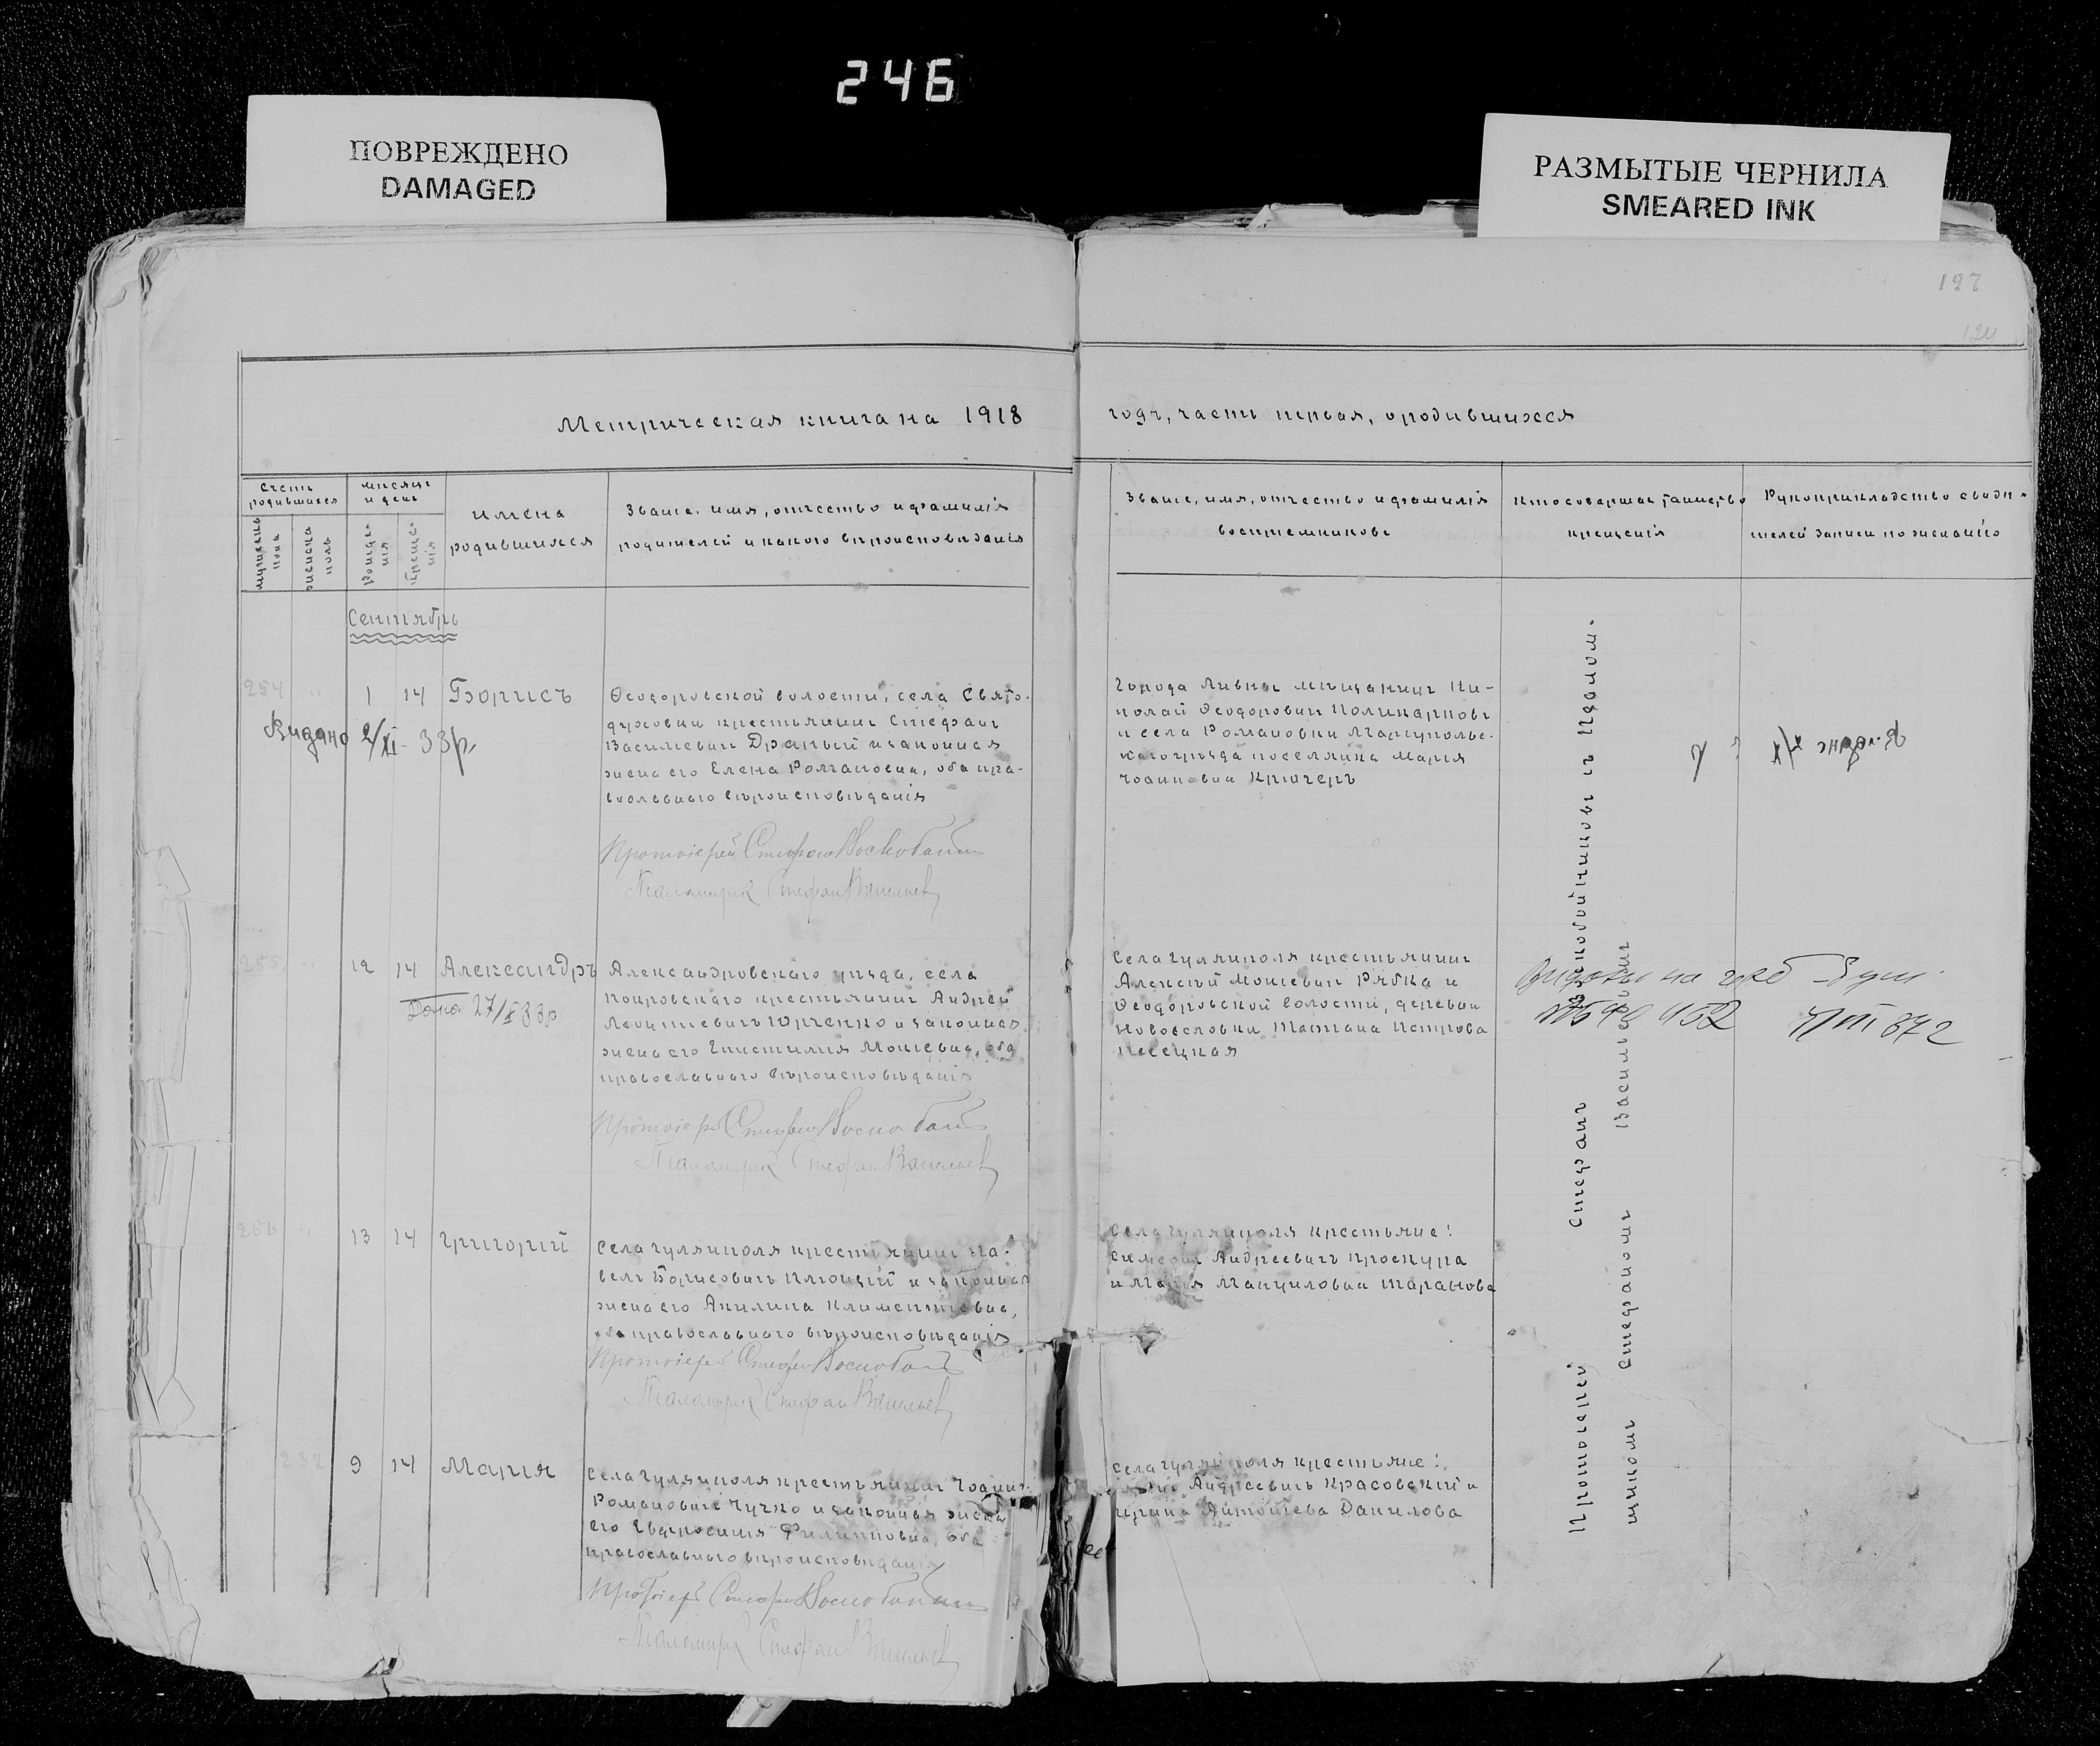 246
ПОВРЕЖДЕНО
DAMAGED
РАЗМЫТЫЕ ЧЕРНИЛА
SMEARED INK
127
124
Метрическая книга на 1918
годъ, часть первая, о родившихся
Счетъ родившихся
мужеска пола
женска полъ
мѣсяцъ и день
рожде-нія
креще-нія
имена
родившихся
Званіе, имя, отчество и фамилія
родителей и какого вѣроисповѣданія
Званіе, имя, отчество и фамилія
воспріемниковъ
Кто совершал таинство
крещенія
Рукоприкладство свидѣ-
телей записи по желанію
Сентябрь
254 " 1 14 Борисъ
Видано 2/XI - 33 р.
Ѳеодоровской волости, села Свято-
духовки крестьянинъ Стефанъ
Василіевичъ Драный и законная
жена его Елена Романовна, оба пра-
вославнаго вѣроисповѣданія
Протоіерей Стефанъ Воскобойник
Псаломщик Стефан Васильев
Города Ливны мѣщанинъ Ни-
колай Ѳеодоровичъ Поликарповъ
и села Романовки Маріупольс-
каго уѣзда поселянка Марія
Іоанновна Крюгеръ
255 " 12 14 Александръ
Дано 27/X 33 р
Александровскаго уѣзда, села
Покровскаго крестьянинъ Андрей
Леонтіевичъ Юрченко и законная
жена его Епистимія Моисеевна, оба
православнаго вѣроисповѣданія
Протоіерей Стефанъ Воскобойник
Псаломщик Стефан Васильев
Села Гуляйполя крестьянинъ
Алексѣй Моисеевичъ Рябка и
Ѳеодоровской волости, деревни
Новоселовки Татіана Петрова
Песецкая
256 " 13 14 Григорій
Села Гуляйполя крестьянинъ Па-
велъ Борисовичъ Клюцкій и законная
жена его Акилина Климентіевна,
оба православнаго вѣроисповѣданія
Протоіерей Стефанъ Воскобойник
Псаломщик Стефан Васильев
Села Гуляйполя крестьяне:
Симеонъ Андреевичъ Проскура
и Марія Мануиловна Таранова
232 9 14 Марія
Села Гуляйполя крестьянинъ Іоаннъ
Романовичъ Чучко и законная жена
его Евфросинія Филипповна, оба
православнаго вѣроисповѣданія
Протоіерей Стефанъ Воскобойник
Псаломщик Стефан Васильев
Села Гуляйполя крестьяне:
Андреевичъ Красовскій и
Ирина Антоніева Данилова
Протоіерей Стефанъ Воскобойниковъ съ Псалом-
щикомъ Стефаномъ Васильевымъ